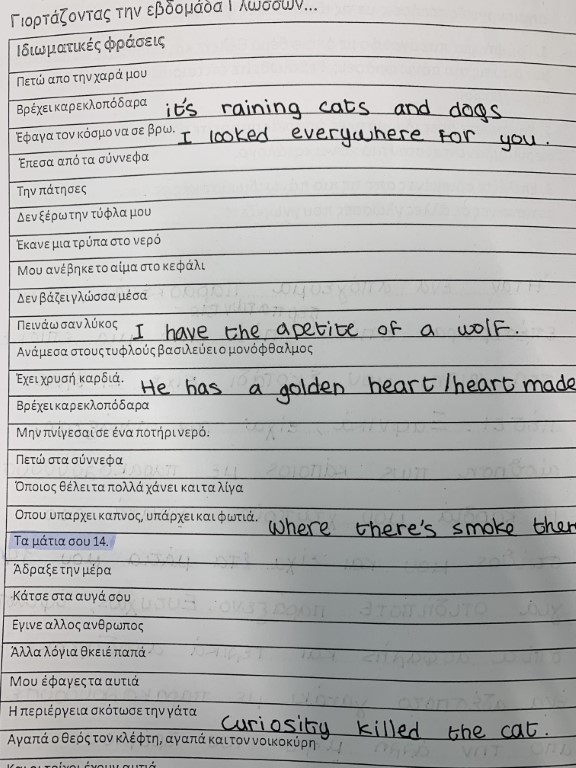 Γιορτάζοντας την εβδομάδα Γλωσσών...
Ιδιωματικές φράσεις
Πετώ απο την χαρά μου
Βρέχει καρεκλοπόδαρα it's raining cats and dogs
Έφαγα τον κόσμο να σε βρω. I looked everywhere for you.
Έπεσα από τα σύννεφα
Την πάτησες
Δεν ξέρω την τύφλα μου
Έκανε μια τρύπα στο νερό
Μου ανέβηκε το αίμα στο κεφάλι
Δεν βάζει γλώσσα μέσα
Πεινάω σαν λύκος I have the apetite of a wolf.
Ανάμεσα στους τυφλούς βασιλεύει ο μονόφθαλμος
Έχει χρυσή καρδιά. He has a golden heart/heart made
Βρέχει καρεκλοπόδαρα
Μην πνίγεσαι σε ένα ποτήρι νερό.
Πετώ στα σύννεφα
Όποιος θέλει τα πολλά χάνει και τα λίγα
Οπου υπαρχει καπνος, υπάρχει και φωτιά. where there's smoke ther
Τα μάτια σου 14.
Άδραξε την μέρα
Κάτσε στα αυγά σου
Εγινε αλλος ανθρωπος
Άλλα λόγια θκειέ παπά
Μου έφαγες τα αυτιά
Η περιέργεια σκότωσε την γάτα curiosity killed the cat.
Αγαπά ο θεός τον κλέφτη, αγαπά και τον νοικοκύρη
Και οι τοίχοι έχουν αυτιά